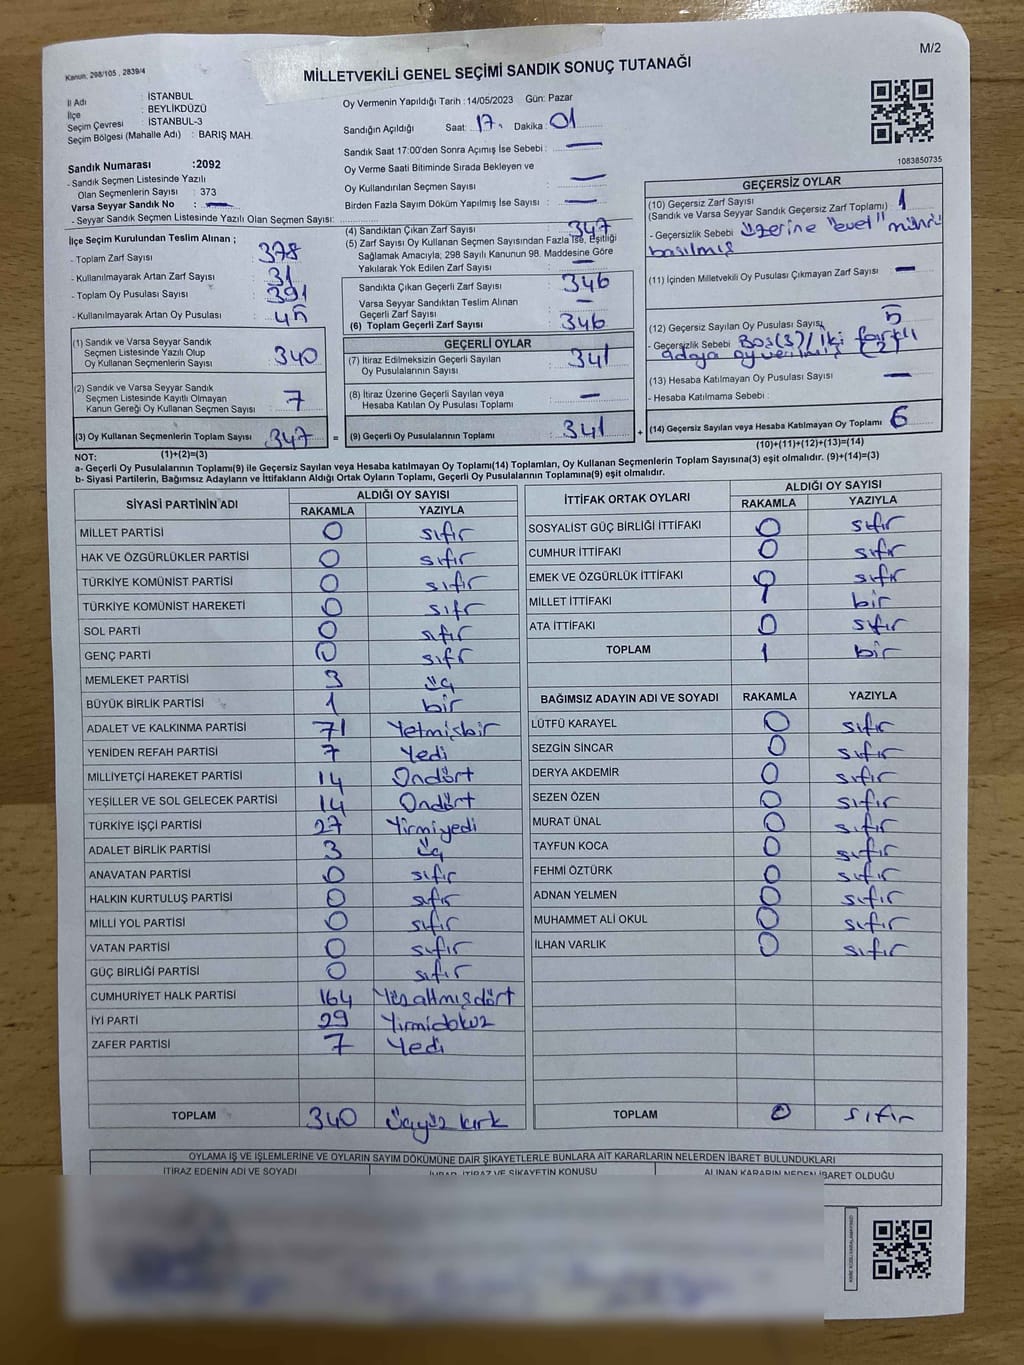 M/2
Kanun: 298/105 , 2839/4
MİLLETVEKİLİ GENEL SEÇİMİ SANDIK SONUÇ TUTANAĞI
İl Adı : İSTANBUL
İlçe : BEYLİKDÜZÜ
Seçim Çevresi : İSTANBUL-3
Seçim Bölgesi (Mahalle Adı) : BARIŞ MAH.
Sandık Numarası :2092
- Sandık Seçmen Listesinde Yazılı
Olan Seçmenlerin Sayısı : 373
Varsa Seyyar Sandık No : —
- Seyyar Sandık Seçmen Listesinde Yazılı Olan Seçmen Sayısı:
Oy Vermenin Yapıldığı Tarih : 14/05/2023 Gün: Pazar
Sandığın Açıldığı Saat: 17. Dakika: 01
Sandık Saat 17:00'den Sonra Açımış İse Sebebi : —
Oy Verme Saati Bitiminde Sırada Bekleyen ve
Oy Kullandırılan Seçmen Sayısı : —
Birden Fazla Sayım Döküm Yapılmış İse Sayısı : —
1083850735
İlçe Seçim Kurulundan Teslim Alınan ;
- Toplam Zarf Sayısı : 378
- Kullanılmayarak Artan Zarf Sayısı : 31
- Toplam Oy Pusulası Sayısı : 391
- Kullanılmayarak Artan Oy Pusulası : 45
(1) Sandık ve Varsa Seyyar Sandık
Seçmen Listesinde Yazılı Olup
Oy Kullanan Seçmenlerin Sayısı : 340
(2) Sandık ve Varsa Seyyar Sandık
Seçmen Listesinde Kayıtlı Olmayan
Kanun Gereği Oy Kullanan Seçmen Sayısı : 7
(3) Oy Kullanan Seçmenlerin Toplam Sayısı : 347
(1)+(2)=(3)
(4) Sandıktan Çıkan Zarf Sayısı : 347
(5) Zarf Sayısı Oy Kullanan Seçmen Sayısından Fazla İse, Eşitliği
Sağlamak Amacıyla; 298 Sayılı Kanunun 98. Maddesine Göre
Yakılarak Yok Edilen Zarf Sayısı : —
Sandıkta Çıkan Geçerli Zarf Sayısı : 346
Varsa Seyyar Sandıktan Teslim Alınan
Geçerli Zarf Sayısı : —
(6) Toplam Geçerli Zarf Sayısı : 346
GEÇERLİ OYLAR
(7) İtiraz Edilmeksizin Geçerli Sayılan
Oy Pusulalarının Sayısı : 341
(8) İtiraz Üzerine Geçerli Sayılan veya
Hesaba Katılan Oy Pusulası Toplamı : —
= (9) Geçerli Oy Pusulalarının Toplamı : 341
GEÇERSİZ OYLAR
(10) Geçersiz Zarf Sayısı : 1
(Sandık ve Varsa Seyyar Sandık Geçersiz Zarf Toplamı)
- Geçersizlik Sebebi : üzerine "evet" mührü
basılmış
(11) İçinden Milletvekili Oy Pusulası Çıkmayan Zarf Sayısı : —
(12) Geçersiz Sayılan Oy Pusulası Sayısı : 5
- Geçersizlik Sebebi : Boş(3)/iki farklı
adaya oy verilmiş (2)
(13) Hesaba Katılmayan Oy Pusulası Sayısı : —
- Hesaba Katılmama Sebebi :
+ (14) Geçersiz Sayılan veya Hesaba Katılmayan Oy Toplamı : 6
(10)+(11)+(12)+(13)=(14)
NOT:
a- Geçerli Oy Pusulalarının Toplamı(9) ile Geçersiz Sayılan veya Hesaba katılmayan Oy Toplamı(14) Toplamları, Oy Kullanan Seçmenlerin Toplam Sayısına(3) eşit olmalıdır. (9)+(14)=(3)
b- Siyasi Partilerin, Bağımsız Adayların ve İttifakların Aldığı Ortak Oyların Toplamı, Geçerli Oy Pusulalarının Toplamına(9) eşit olmalıdır.
SİYASİ PARTİNİN ADI ALDIĞI OY SAYISI
RAKAMLA YAZIYLA
MİLLET PARTİSİ 0 sıfır
HAK VE ÖZGÜRLÜKLER PARTİSİ 0 sıfır
TÜRKİYE KOMÜNİST PARTİSİ 0 sıfır
TÜRKİYE KOMÜNİST HAREKETİ 0 sıfr
SOL PARTİ 0 sıfır
GENÇ PARTİ 0 sıfr
MEMLEKET PARTİSİ 3 üç
BÜYÜK BİRLİK PARTİSİ 1 bir
ADALET VE KALKINMA PARTİSİ 71 Yetmişbir
YENİDEN REFAH PARTİSİ 7 Yedi
MİLLİYETÇİ HAREKET PARTİSİ 14 Ondört
YEŞİLLER VE SOL GELECEK PARTİSİ 14 Ondört
TÜRKİYE İŞÇİ PARTİSİ 27 Yirmiyedi
ADALET BİRLİK PARTİSİ 3 üç
ANAVATAN PARTİSİ 0 sıfır
HALKIN KURTULUŞ PARTİSİ 0 sıfır
MİLLİ YOL PARTİSİ 0 sıfır
VATAN PARTİSİ 0 sıfır
GÜÇ BİRLİĞİ PARTİSİ 0 sıfır
CUMHURİYET HALK PARTİSİ 164 Yüzaltmışdört
İYİ PARTİ 29 Yirmidokuz
ZAFER PARTİSİ 7 Yedi
TOPLAM 340 üçyüz kırk
İTTİFAK ORTAK OYLARI ALDIĞI OY SAYISI
RAKAMLA YAZIYLA
SOSYALİST GÜÇ BİRLİĞİ İTTİFAKI 0 sıfır
CUMHUR İTTİFAKI 0 sıfır
EMEK VE ÖZGÜRLÜK İTTİFAKI 0 sıfır
MİLLET İTTİFAKI 1 bir
ATA İTTİFAKI 0 sıfır
TOPLAM 1 bir
BAĞIMSIZ ADAYIN ADI VE SOYADI RAKAMLA YAZIYLA
LÜTFÜ KARAYEL 0 sıfır
SEZGİN SİNCAR 0 sıfır
DERYA AKDEMİR 0 sıfır
SEZEN ÖZEN 0 sıfır
MURAT ÜNAL 0 sıfır
TAYFUN KOCA 0 sıfır
FEHMİ ÖZTÜRK 0 sıfır
ADNAN YELMEN 0 sıfır
MUHAMMET ALİ OKUL 0 sıfır
İLHAN VARLIK 0 sıfır
TOPLAM 0 sıfır
OYLAMA İŞ VE İŞLEMLERİNE VE OYLARIN SAYIM DÖKÜMÜNE DAİR ŞİKAYETLERLE BUNLARA AİT KARARLARIN NELERDEN İBARET BULUNDUKLARI
İTİRAZ EDENİN ADI VE SOYADI İTİRAZ VE ŞİKAYETİN KONUSU ALINAN KARARIN NEDEN İBARET OLDUĞU